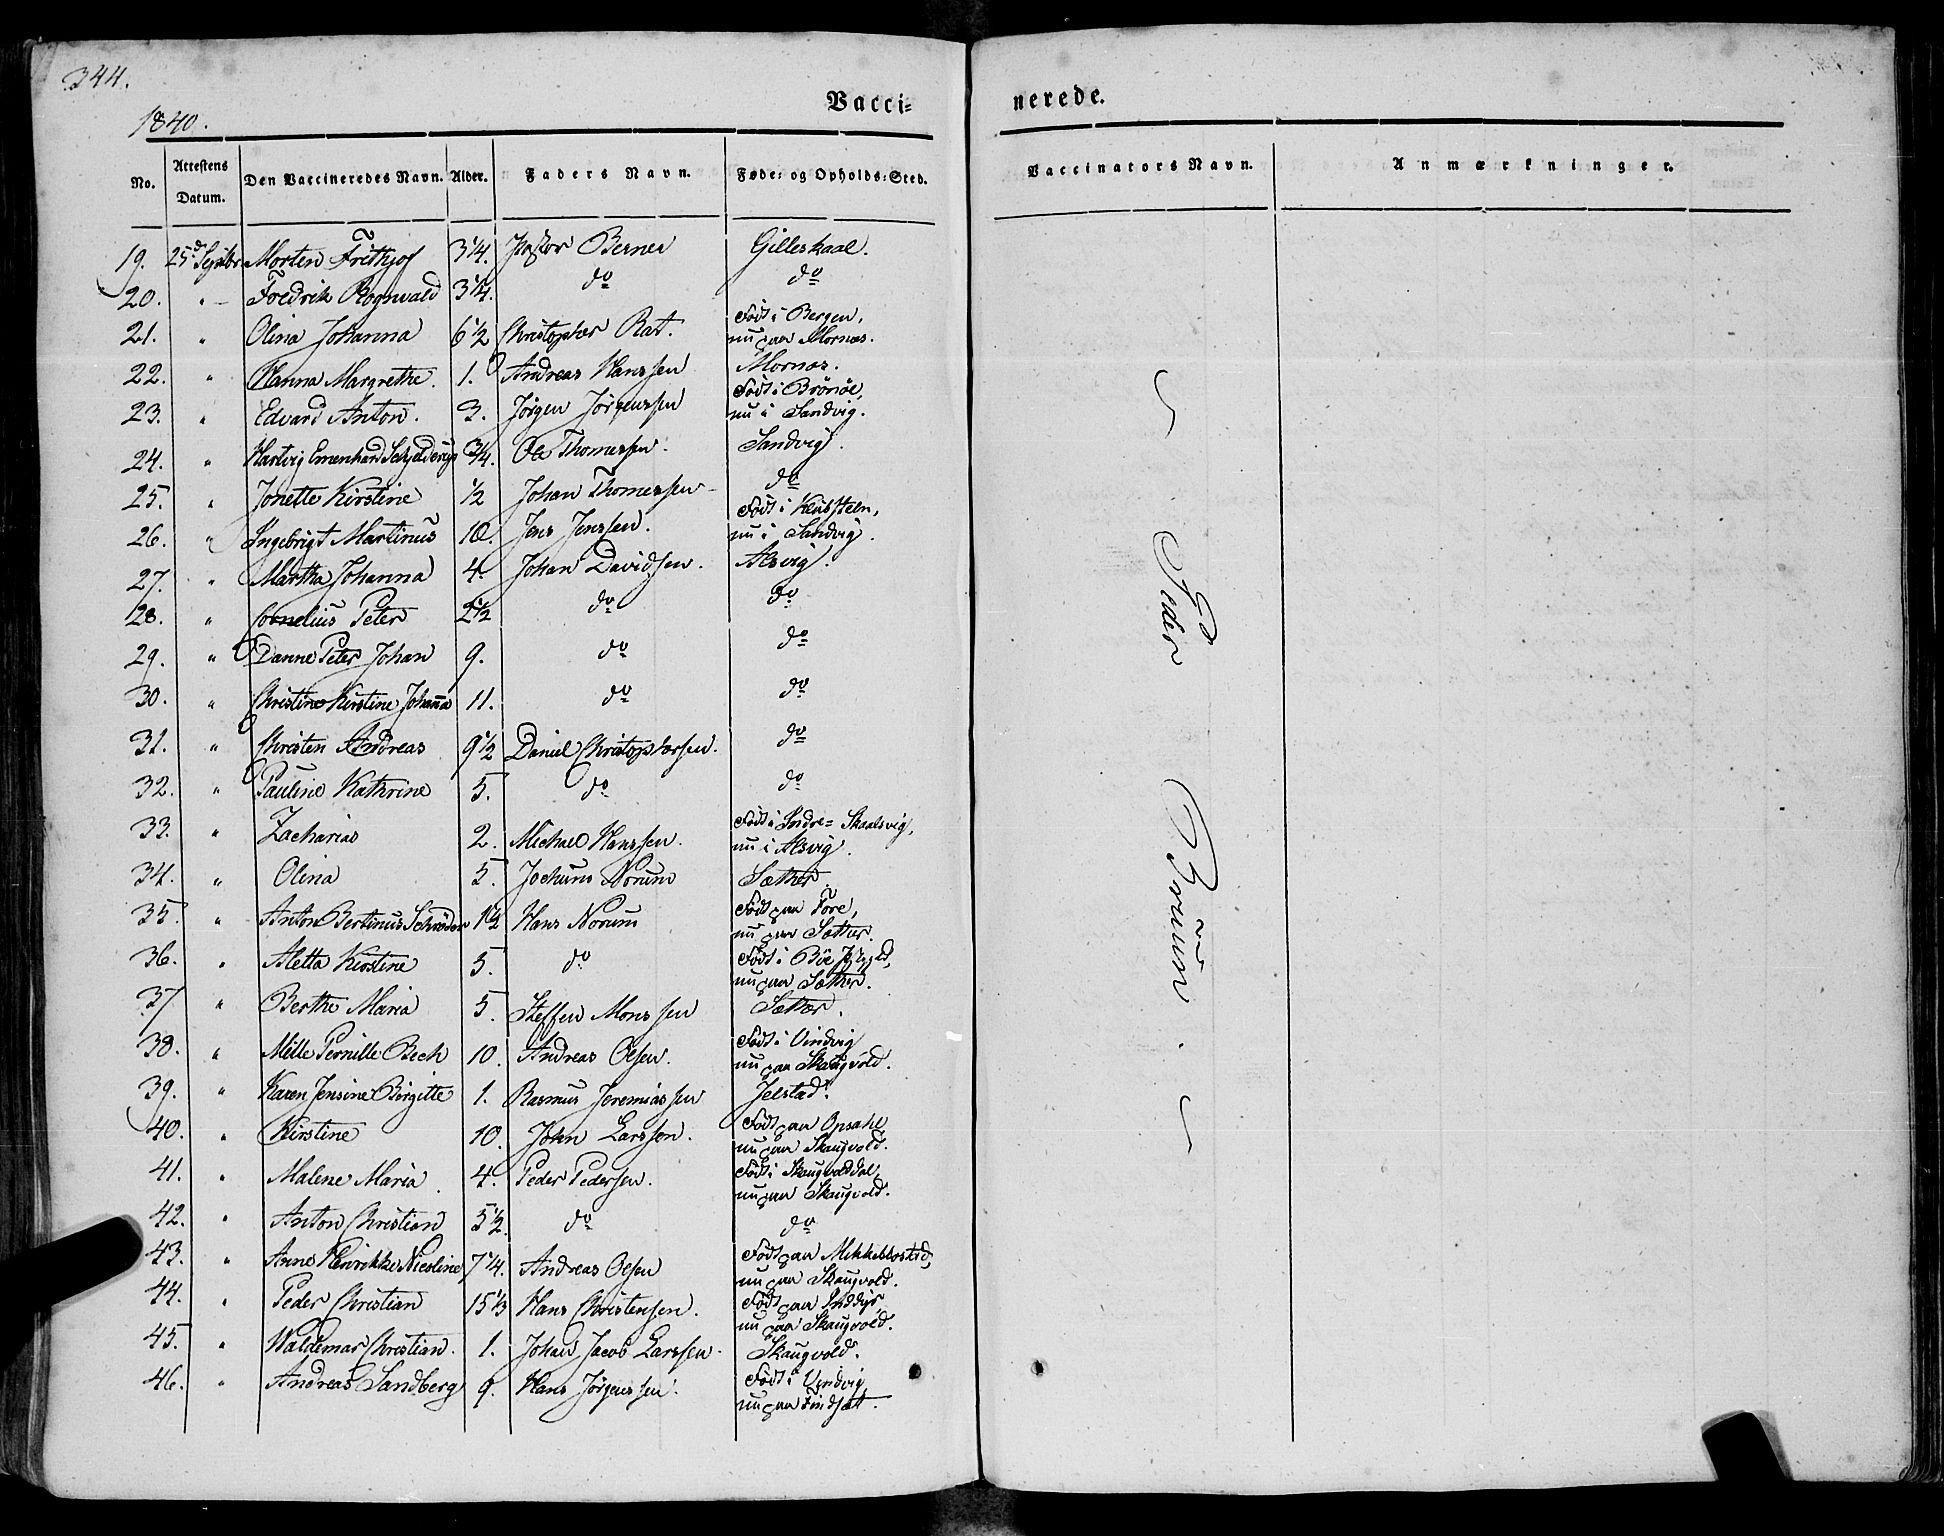 344.
1840.
Vacci=
nerede.
No. Attestens Datum. Den Vaccineredes Navn. Alder. Faders Navn. Føde= og Opholds=Sted.
Vaccinators Navn. Anmærkninger.
19. 25d Septbr Morten Frithjof 3 1/4. Pastor Berner Gilleskaal.
20. " Fredrik Rognvald 3 1/4. do do
21. " Olina Johanna 6 1/2 Christopher Rat. Født i Bergen,
nu paa Mornæs.
22. " Hanna Margrethe. 1. Andreas Hanssen Mornæs.
23. " Edvard Anton. 3. Jørgen Jørgenssen Født i Brönöe,
nu i Sandvig.
24. " Hartvig Emenhard Schjelderup 3/4. Ole Thomessen. Sandvig.
25. " Jonette Kirstine 1/2 Johan Thomessen do
26. " Ingebrigt Martinus 10. Jens Jenssen. Født i
nu i Sandvig.
27. " Martha Johanna 4. Johan Davidsen. Alsvig.
28. " Cornelius Peter 2 1/2 do do
29. " Danne Peter Johan 9. do do
30. " Christine Kirstine Johanna 11. do do
31. " Christen Andreas 9 1/2 Daniel Christophersen. do
32. " Pauline Kathrine 5. do do
33. " Zacharias 2. Michael Hanssen. Født i Indre= Skaalsvig,
nu i Alsvig.
34. " Olina 5. Jochum Norum Sæther.
35. " Anton Bertinus Schrøder 1 1/2 Hans Norum Født paa Fore,
nu paa Sæther.
36. " Aletta Kirstine 5. do Født i Böe
nu paa Sæther.
37 " Berthe Maria 5. Steffen Monssen Sæther.
38. " Mille Pernille Bech 10. Andreas Olsen. Født i Vindvig
nu paa Skaugvold.
39. " Karen Jensine Birgitte 1. Rasmus Jeremiassen Jelstad.
40. " Kirstine 10. John Larssen. Født paa Opsahl
nu paa Skaugvold.
41. " Malene Maria 4. Peder Pedersen. Født i Skaugvolddal,
nu paa Skaugvold.
42. " Anton Christian 5 1/2. do do
43. " Anne Henrikke Nicoline 7 1/4. Andreas Olsen Født paa
nu paa Skaugvold.
44. " Peder Christian 15 1/3 Hans Christensen. Født paa Inddyr
nu paa Skaugvold.
45. " Waldemar Christian. 1. Johan Jacob Larssen. Skaugvold.
46. " Andreas Sandberg 9. Hans Jørgenssen. Født i Vindvig
nu paa Findsæt.
Peder Bruun.